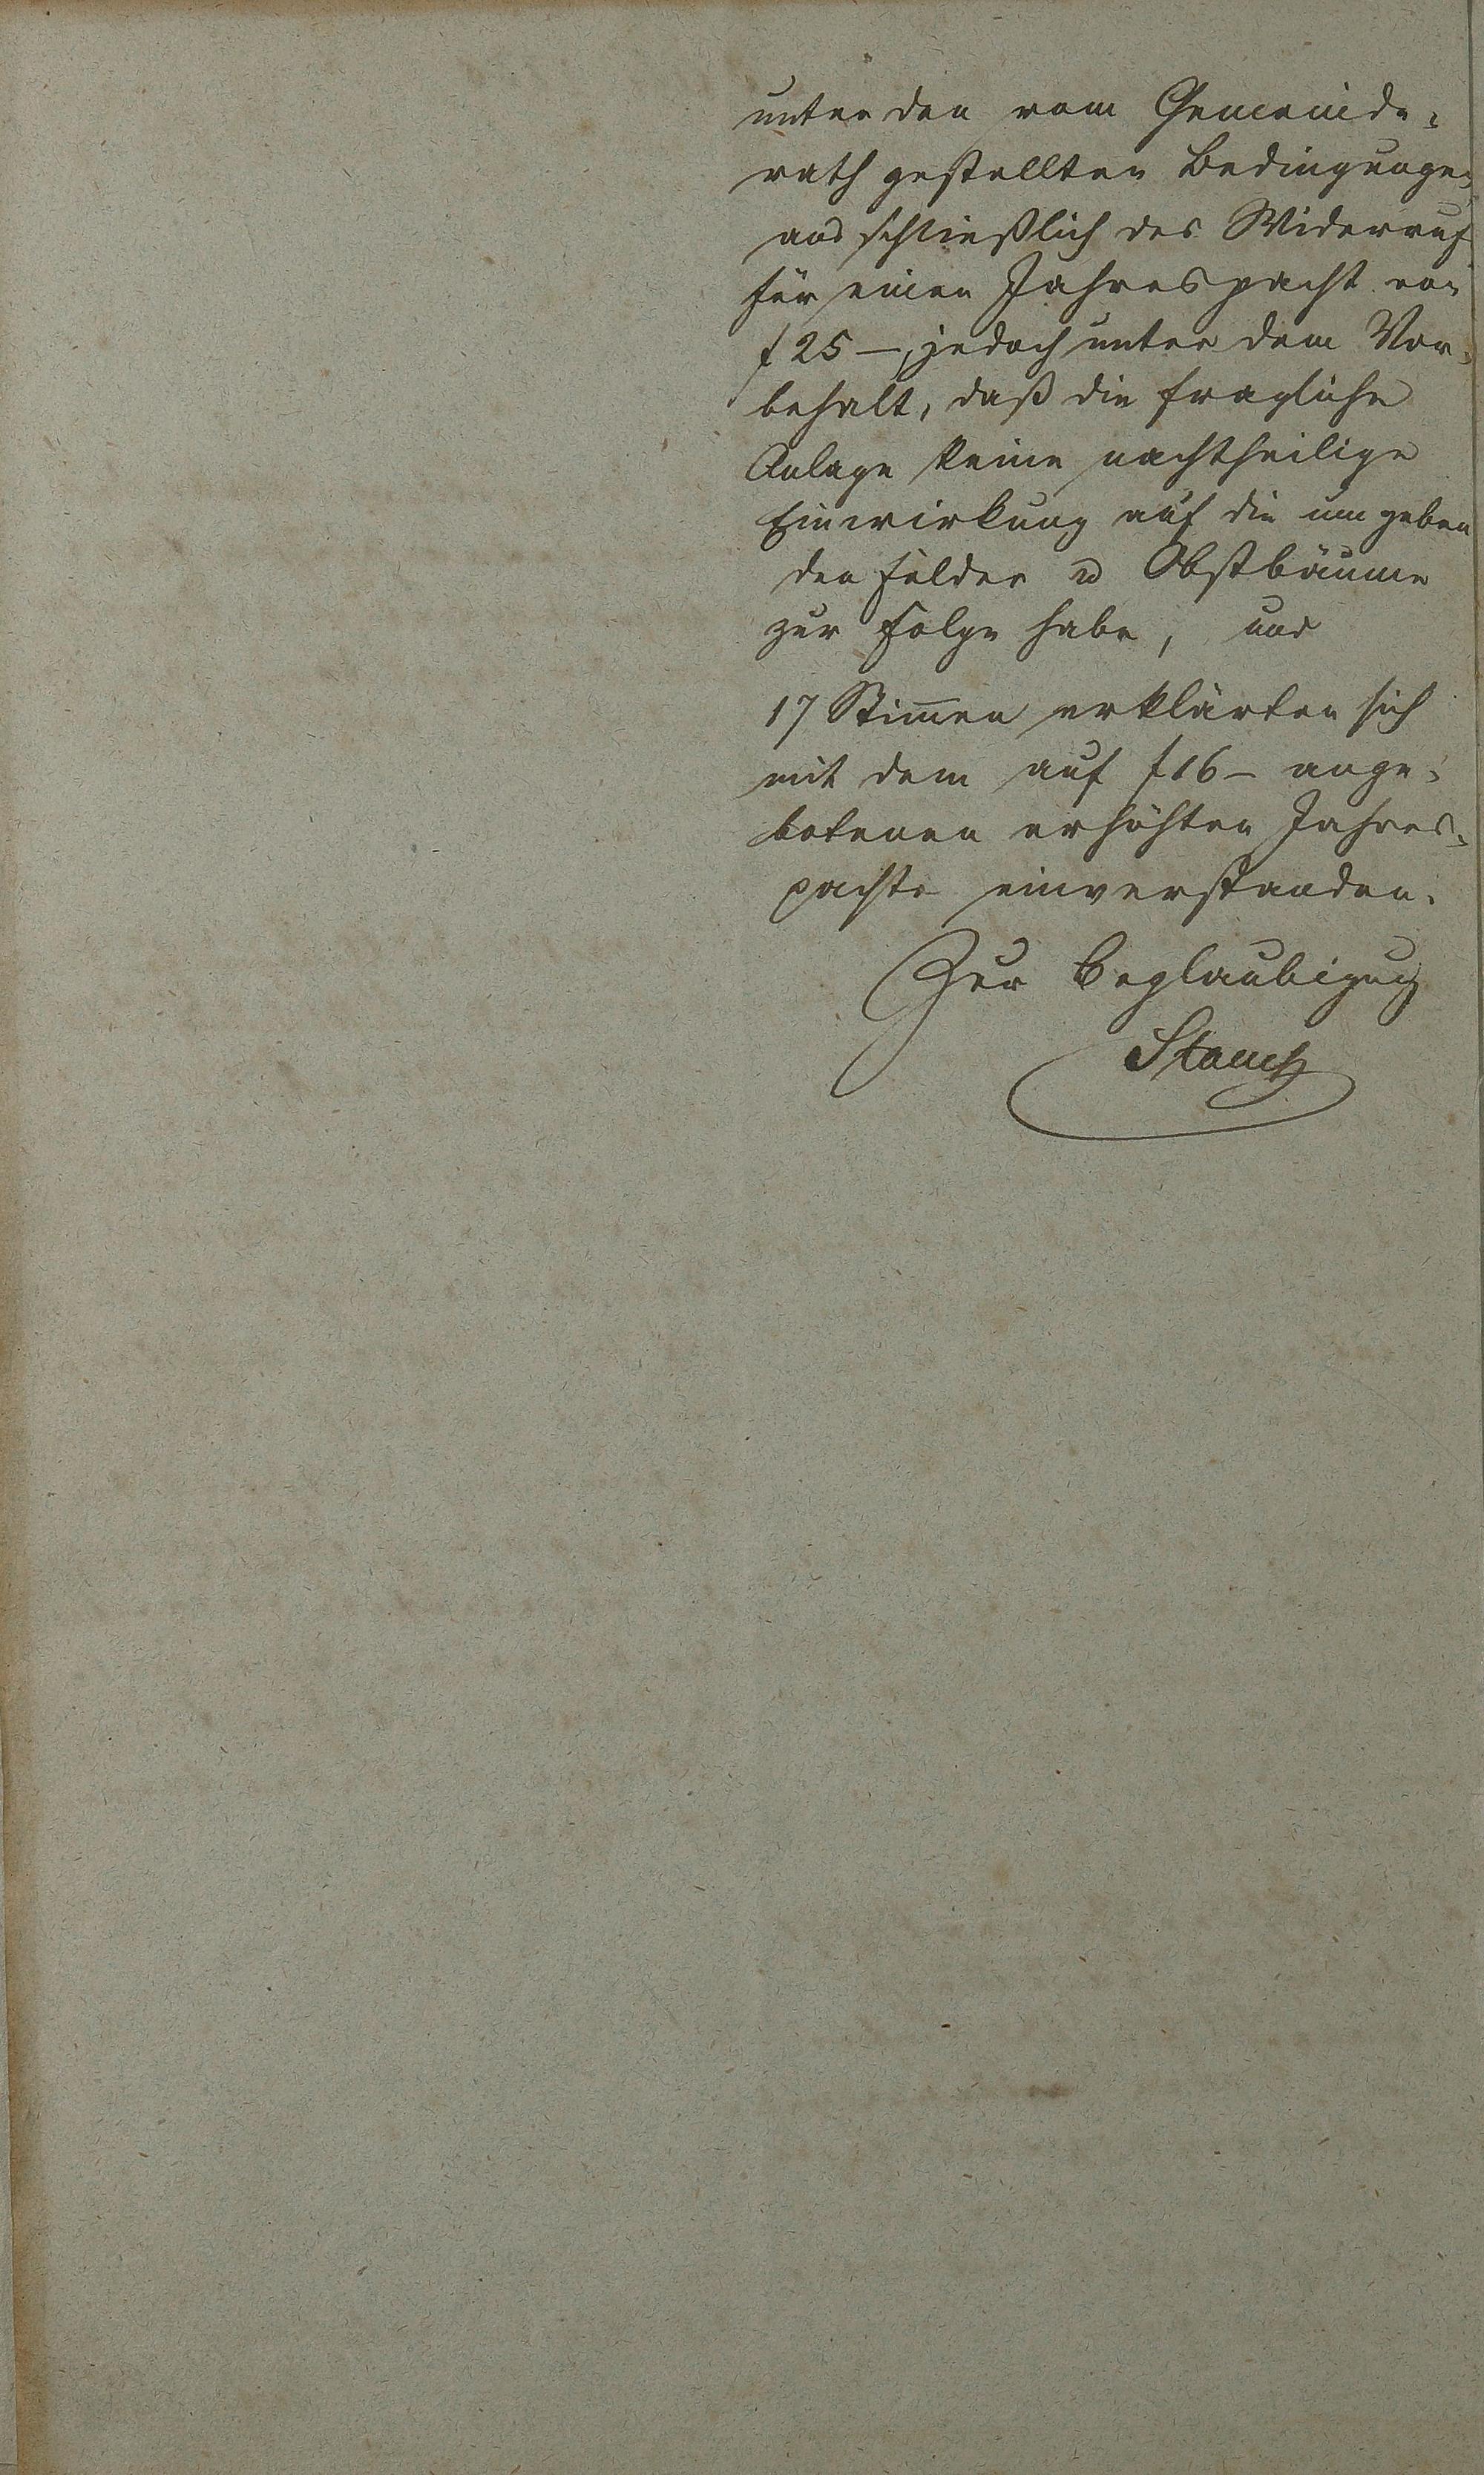 unter den vom Gemeinde-
rath gestellten Bedingungen
ausschließlich des Widerrufs
für einen Jahrespacht von
f 25 –, jedoch unter dem Vor-
behalt, daß die fragliche
Anlage keine nachtheilige
Einwirkung auf die umgeben
den Felder u Obstbäume
zur Folge habe, und
17 Stim̅en erklärten sich
mit dem auf f 16 – ange-
botenen erhöhten Jahres-
pachte einverstanden.
Zur Beglaubigung